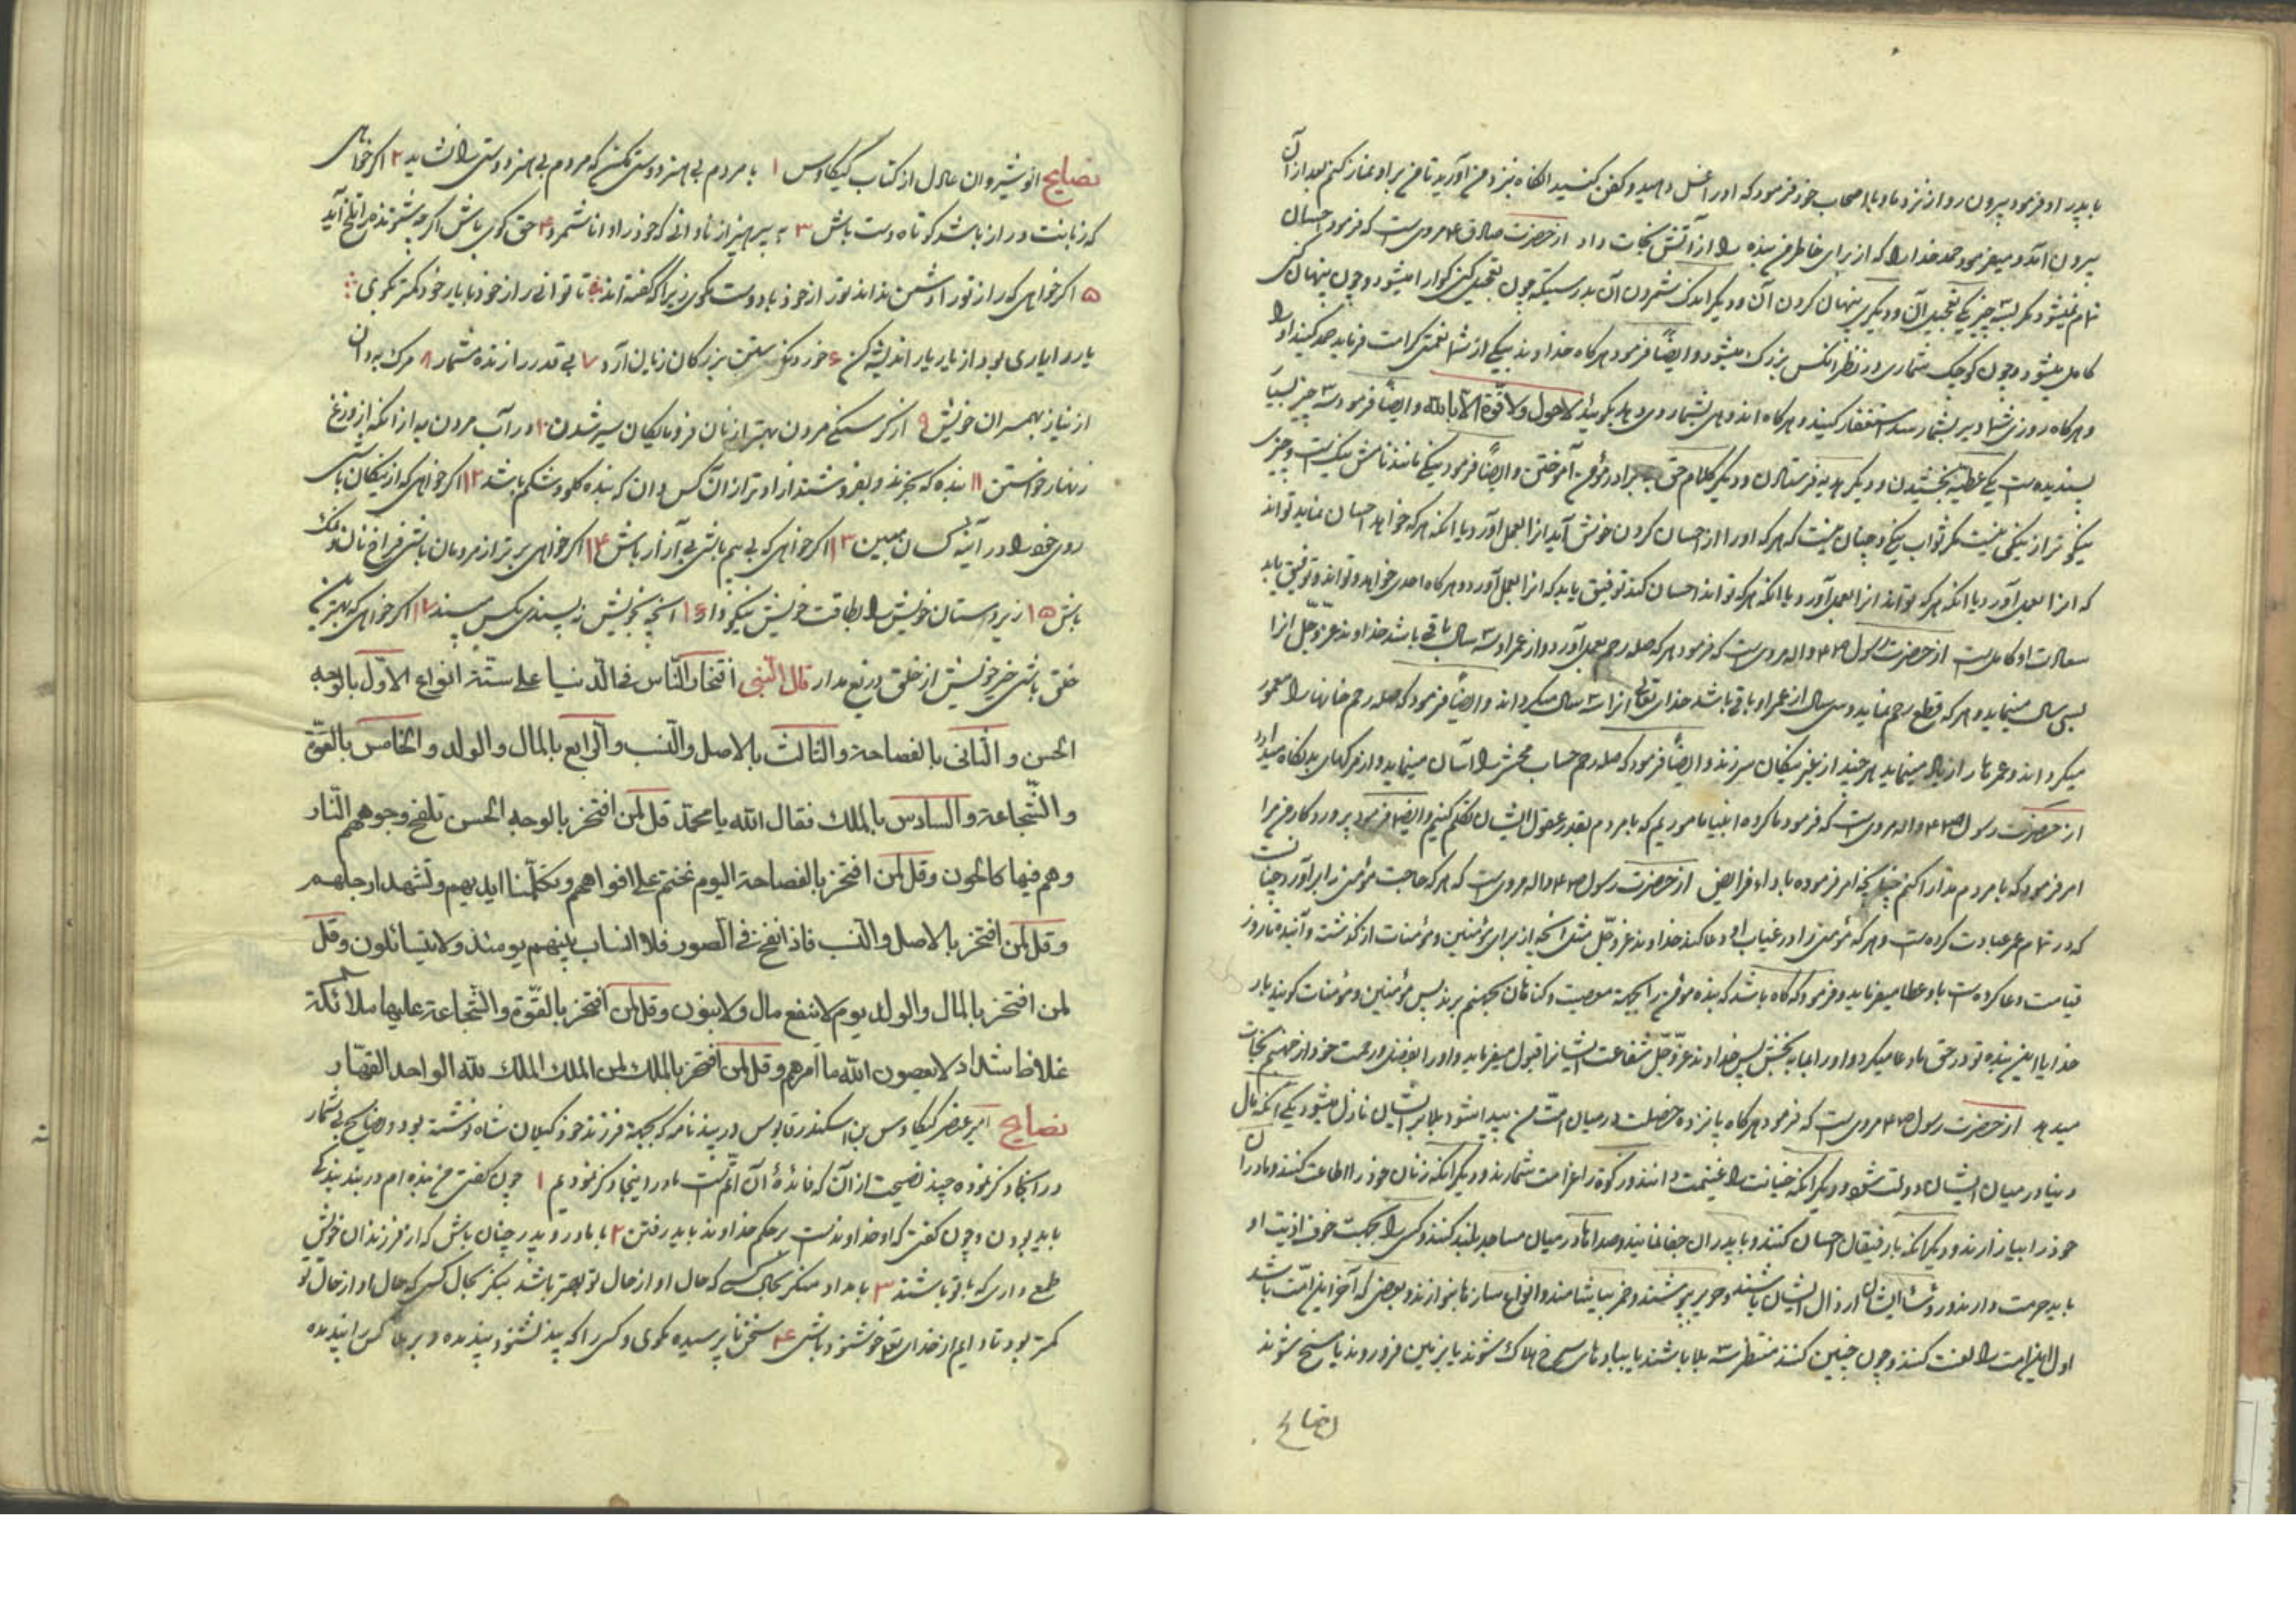 با پدر او فرمود بیرون رو از نزد ما و با اصحاب خود فرمود که او را غسل دهید و کفن کنید انگاه نزد من آورید تا من بر او نماز کنم بعد از آن
بیرون آمد و میفرمود حمد خدا را که از برای خاطر من بنده را از آتش نجات داد از حضرت صادق ع مروی است که فرمود احسان
تمام نمیشود مگر بسه چیز یکی تعجیل آن و دیگری پنهان کردن آن و دیگر اندک شمردن آن بدرستیکه چون تعجیل کنی گوارا میشود و چون پنهان کنی
کامل میشود و چون کوچک شماری در نظر انکس بزرگ میشود و ایضاً فرمود هرگاه خداوند بیکی از شما نعمتی کرامت فرماید حمد کنید او را
و هرگاه روزی شما دیر بشما رسد استغفار کنید و هرگاه اندوهی بشما روی دهد بگوئید لا حول ولا قوّة الا بالله و ایضاً فرمود سه چیز بسیا
پسندیده است یکی عطیه بخشیدن و دیگر هدیه فرستادن و دیگر کلام حق به برادر مؤمن آموختن و ایضاً فرمود نیکی مانند نامش نیک است و چیزی
نیکوتر از نیکی نیست مگر ثواب نیکی و چنان نیست که هر که او را از احسان کردن خوش آید انرا بعمل آورد یا انکه هر که خواهد احسان نماید تواند
که انرا بعمل آورد یا انکه هر که تواند انرا بعمل آورد و یا انکه هر که تواند احسان کند توفیق یابد که انرا بعمل آورد و هرگاه احدی خواهد و تواند و توفیق یابد
سعادت او کامل است از حضرت رسول ص و اله مروی است که فرمود هر که صله رحم بعمل آورد و از عمر او سه سال باقی باشد خداوند عزّ و جلّ انرا
بسی سال مینماید و هر که قطع رحم نماید و سی سال از عمر او باقی باشد خدای تعالی انرا سه سال میگرداند و ایضاً فرمود که صله رحم خانها را معمور
میگرداند و عمرها را زیاد مینماید هر چند از غیر نیکان سر زند و ایضاً فرمود که صله رحم حساب محشر را آسان مینماید و از مرگهای بد نگاه میدارد
از حضرت رسول ص و اله مروی است که فرمود ما گروه انبیا ماموریم که با مردم بقدر عقول ایشان تکلم کنیم و ایضاً فرمود پروردگار من مرا
امر فرمود که با مردم مدارا کنم چنانچه امر فرموده باداء فرایض از حضرت رسول ص و اله مروی است که هر که حاجت مؤمنی را برآورد چنانست
که در تمام عمر عبادت کرده است و هر که مؤمنی را در غیاب او دعا کند خداوند عزّ و جلّ مثل انچه از برای مؤمنین و مؤمنات از گذشته و آینده تا روز
قیامت دعا کرده است باو عطا میفرماید و فرمود که گاه باشد که بنده مؤمن را بجهة معصیت و گناهان بجهنم برند پس مؤمنین و مؤمنات گویند بار
خدایا این بنده تو در حق ما دعا میکرد و او را بما ببخش پس خداوند عزّ و جلّ شفاعت ایشانرا قبول میفرماید و او را بفضل و رحمت خود از جهنم نجات
میدهد از حضرت رسول ص مروی است که فرمود هرگاه پانزده خصلت در میان امّت من پیدا شود بلا بر ایشان نازل میشود یکی انکه مال
دنیا در میان ایشان دولت شود و دیگر انکه خیانت را غنیمت دانند و زکوة را غرامت شمارند و دیگر انکه زنان خود را اطاعت کنند و مادران
خود را بیازارند و دیگر انکه با رفیقان احسان کنند و با پدران جفا نمایند و صداها در میان مساجد بلند کنند و کسی را بجهت خوف اذیت او
باید حرمت دارند و رؤسای ایشان ارذال ایشان باشند و حریر بپوشند و خمر بیاشامند و انواع سازها بنوازند و بعضی که آخر این امّت باشند
اول این امت را لعنت کنند و چون چنین کنند منتظر سه بلا باشند یا ببادهای سرخ هلاک شوند یا بزمین فرو روند یا مسخ شوند
نصایح
نصایح انوشیروان عادل از کتاب کیکاوس ۱ با مردم بی هنر دوستی مکن که مردم بی هنر دوستی را نشاید ۲ اگر خواهی
که زبانت دراز باشد کوتاه دست باش ۳ بپرهیز از نادانی که خود را دانا شمرد ۴ حق گوی باش اگر چه شنونده را تلخ آید
۵ اگر خواهی که راز تو را دشمن نداند تو راز خود با دوست مگوی زیرا که گفته اند تا توانی راز خود با یار خود کمتر گوی
یار را یاری بود از یار یار اندیشه کن ۶ خورد نگریستن بزرگان زیان آرد ۷ بی قدر را زنده مشمار ۸ مرگ به دان
از نیاز بهمسران خویش ۹ از گرسنگی مردن بهتر از نان فرومایگان سیر شدن ۱۰ در آب مردن به از انکه از وزغ
زنهار خواستن ۱۱ بنده که بخرند و بفروشند ازادتر از آن کس دان که بنده گلو و شکم باشد ۱۲ اگر خواهی که از نیکان باشی
روی خود را در آینه کسان ببین ۱۳ اگر خواهی که بی بیم باشی بی آزار باش ۱۴ اگر خواهی برتر از مردمان باشی فراخ نان و نمک
باش ۱۵ زیردستان خویش را بطاقت خویش نیکو دار ۱۶ انچه بخویش نپسندی بکس مپسند ۱۷ اگر خواهی که بهترین
خلق باشی خیر خویش از خلق دریغ مدار قال النبی افتخار النّاس فی الدّنیا علی ستّة انواع الاوّل بالوجه
الحسن و الثّانی بالفصاحة و الثالث بالاصل و النّسب و الرّابع بالمال و الولد و الخامس بالقوّة
و الشّجاعة و السادس بالملك فقال الله یا محمّد قل لمن افتخر بالوجه الحسن تلفح وجوههم النّار
و هم فیها کالحون و قل لمن افتخر بالفصاحة الیوم نختم علی افواههم و تکلّمنا ایدیهم و تشهد ارجلهم
و قل لمن افتخر بالاصل و النّسب فاذا نفخ فی الصّور فلا انساب بینهم یومئذ ولا یتسائلون و قل
لمن افتخر بالمال و الولد یوم لا ینفع مال ولا بنون و قل لمن افتخر بالقوّة و الشّجاعة علیها ملائکة
غلاظ شداد لا یعصون الله ما امرهم و قل لمن افتخر بالملك لمن الملك الملك لله الواحد القهّار
نصایح امیر عنصر کیکاوس بن اسکندر قابوس در پند نامه که بجهة فرزند خود گیلان شاه نوشته بود و نصایح بی شمار
در انجا ذکر نموده چند نصیحت از آن که فائدهٔ آن اعمّ است ما در اینجا ذکر نمودیم ۱ چون گفتی من بنده ام در بند بندگی
باید بودن و چون گفتی که او خداوند است بر حکم خداوند باید رفتن ۲ با مادر و پدر چنان باش که از فرزندان خویش
طمع داری که با تو باشند ۳ بامداد منگر بحال کسی که حال او از حال تو بهتر باشد بنگر بحال کسی که حال او از حال تو
کمتر بود تا دایم از خدای تعالی خوشنود باشی ۴ سخن ناپرسیده مگوی و کسی را که پند نشنود پند مده و بر ملا کس را پند مده